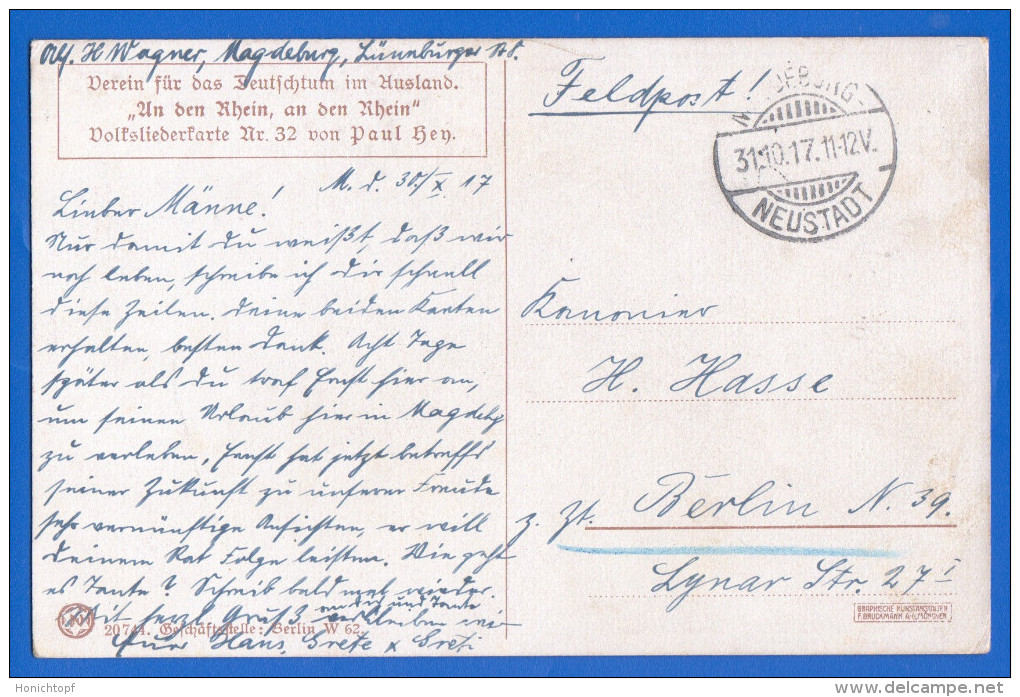 Abs. H Wagner, Magdeburg, Lüneburger str 8.
Verein für das Deutschtum im Ausland.
„An den Rhein, an den Rhein“
Volksliederkarte Nr. 32 von Paul Hey.
M. d. 30./X. 17
Lieber Männe!
Nur damit du weißt, daß wir
noch leben, schreibe ich dir schnell
diese Zeilen. Deine beiden Karten
erhalten, besten Dank. Acht Tage
später als du traf Ernst hier ein,
um seinen Urlaub hier in Magdebg
zu verleben, Ernst hat jetzt betreffs
seiner Zukunft zu unserer Freude
sehr vernünftige Ansichten, er will
deinem Rat Folge leisten. Wie geht
es Tante? Schreib bald mal wieder.
an dich und Tante
Mit herzl. Gruß verbleiben wir
Euer Hans, Grete & Greti
20744. Geschäftsstelle: Berlin W 62.
Feldpost!
MAGDEBURG-
31.10.17.11-12V.
NEUSTADT
Kanonier
H. Hasse
z. Zt. Berlin N. 39.
Lynar Str. 27 I
GRAPHISCHE KUNSTANSTALTEN
F. BRUCKMANN A.-G. MÜNCHEN
Honichtopf
www.delcampe.net